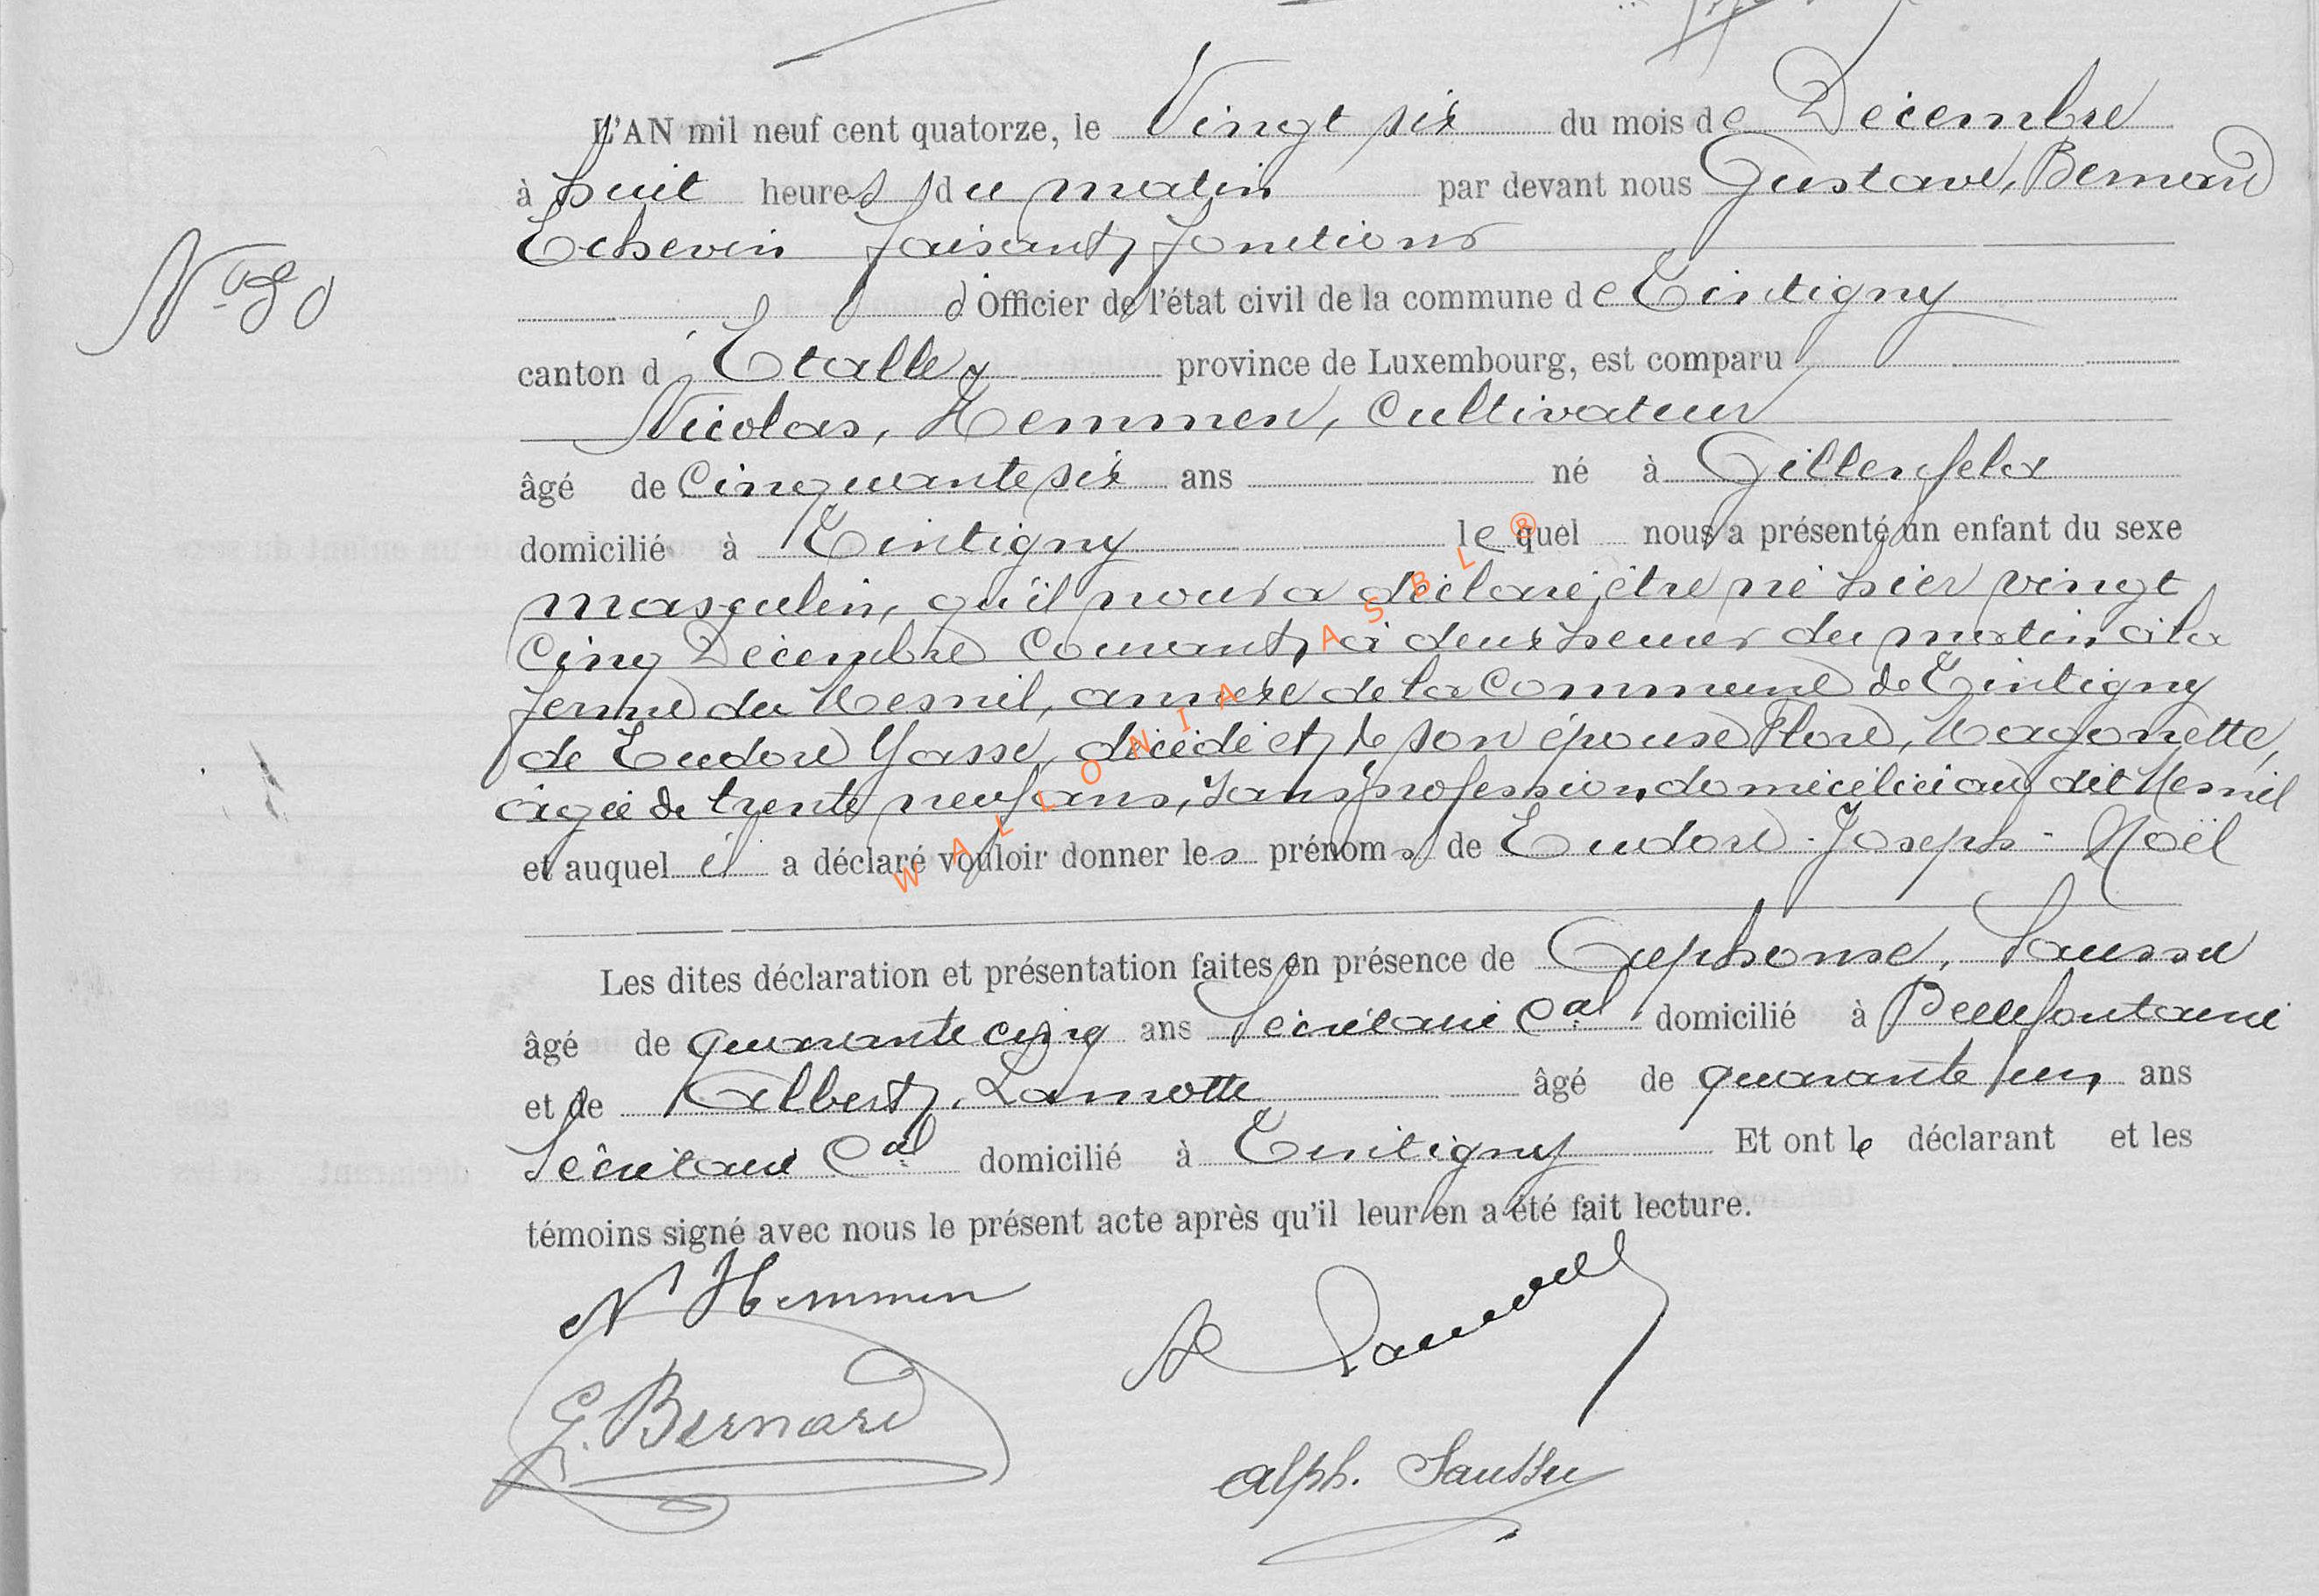 L'AN mil neuf cent quatorze, le Vingt six du mois de Décembre
à huit heures du matin par devant nous Gustave, Bernard
Echevin faisant fonctions
d'Officier de l'état civil de la commune de Tintigny
canton d'Etalle, province de Luxembourg, est comparu
Nicolas, Hemmen, Cultivateur
âgé de Cinquante six ans né à Gillenfeld
domicilié à Tintigny lequel nous a présenté un enfant du sexe
masculin, qu'il nous a déclaré être né hier vingt
Cinq Décembre Courant, à deux heures du matin à la
ferme du Mesnil, annexe de la Commune de Tintigny
de Eudore Yasse, décédé et de son épouse Flore, Magonette,
âgée de trente neuf ans, sans profession, domiciliée au dit Mesnil
et auquel il a déclaré vouloir donner les prénoms de Eudore - Joseph - Noël
Les dites déclaration et présentation faites en présence de Alphonse, Saussu
âgé de quarante cinq ans Secrétaire Cal domicilié à Bellefontaine
et de Albert, Lamotte âgé de quarante un, ans
Secrétaire Cal domicilié à Tintigny Et ont le déclarant et les
témoins signé avec nous le présent acte après qu'il leur en a été fait lecture.
N Hemmen
G. Bernard
Alph. Saussu
WALLONIA ASBL ®